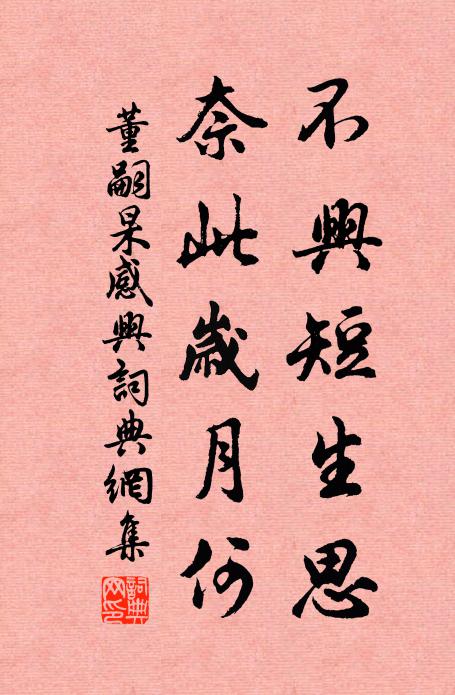 不興短生思
奈此歲月何
董嗣杲感興詞典網集
詞典网印